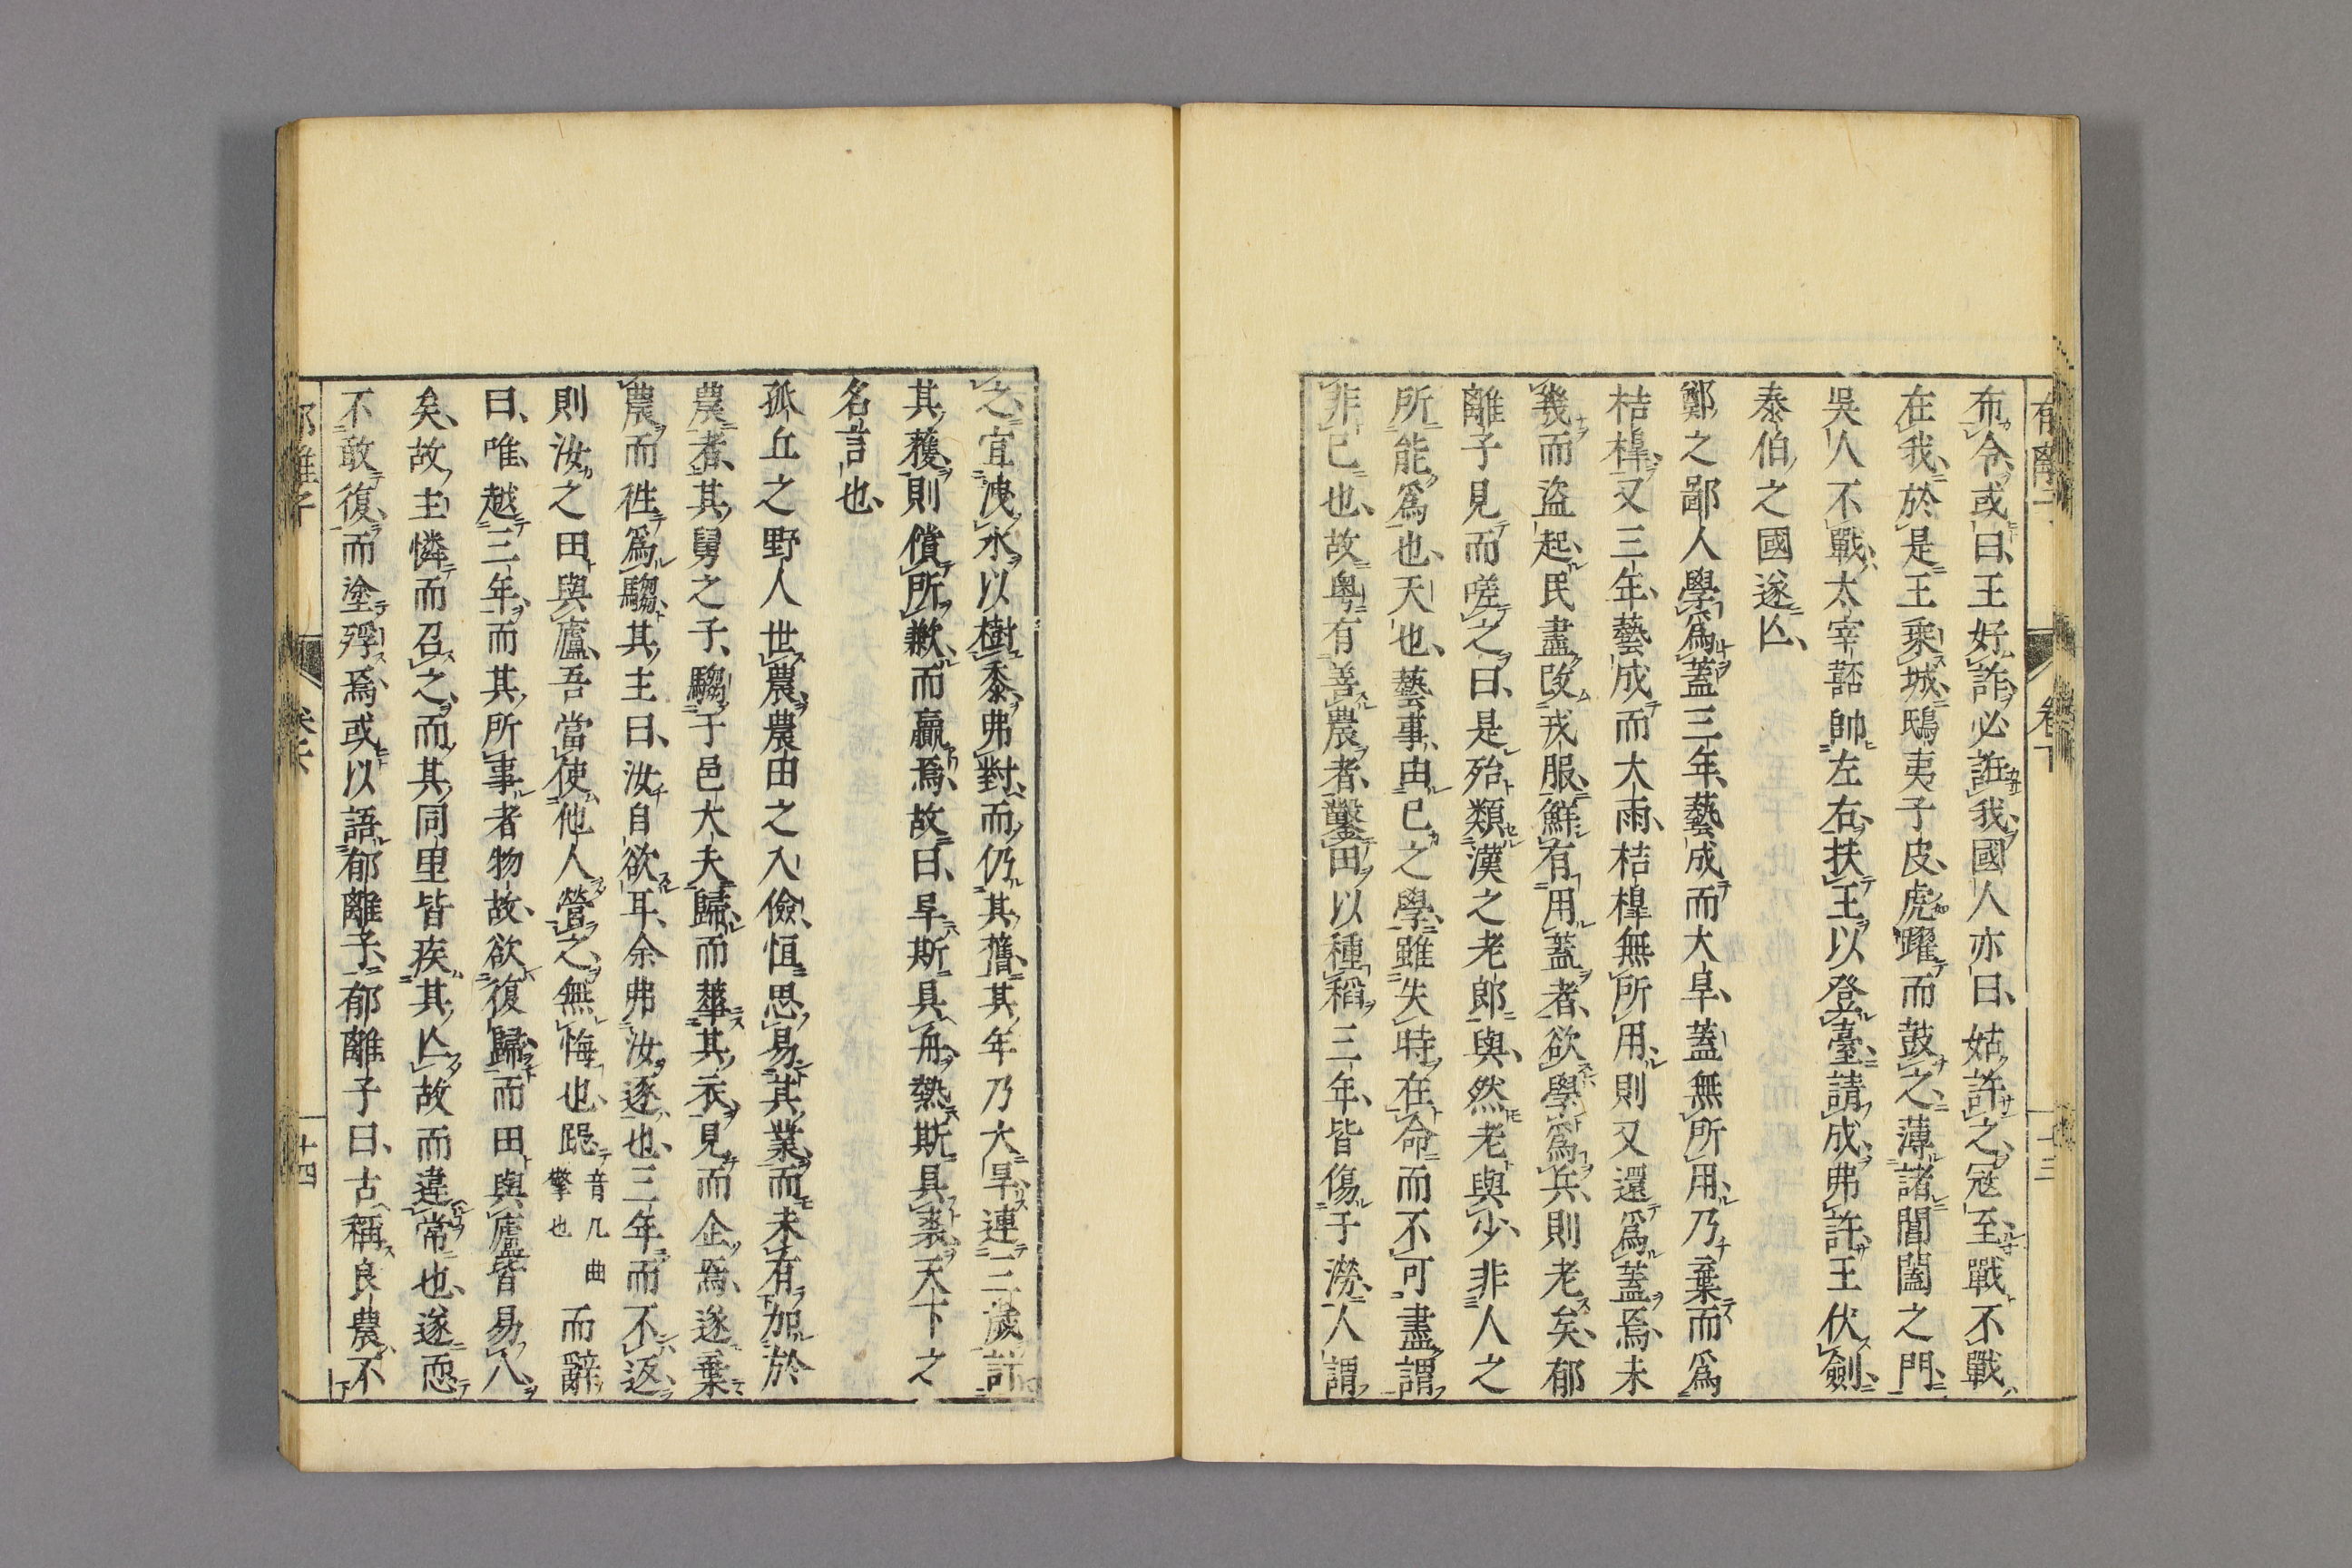 布令或曰王好詐必誑我國人亦曰姑許之寇至戰不戰
在我於是王乘城鴟夷子皮虎躍而鼓之薄諸閶闔之門
吳人不戰太宰嚭帥左右扶王以登臺請成弗許王伏劍
泰伯之國遂亾
鄭之鄙人學爲蓋三年藝成而大旱蓋無所用乃棄而爲
桔橰又三年藝成而大雨桔橰無所用則又還爲蓋焉未
幾而盜起民盡改戎服鮮有用蓋者欲學爲兵則老矣郁
離子見而嗟之曰是殆類漢之老郎與然老與少非人之
所能爲也天也藝事由已之學雖失時在命而不可盡謂
非已也故粤有善農者鑿田以種稻三年皆傷于澇人謂
之宜洩水以樹黍弗對而仍其舊其年乃大旱連三歲計
其穫則償所歉而贏焉故曰旱斯具舟熱斯具裘天下之
名言也
孤丘之野人世農農田之入儉恒思易其業而未有加於
農者其舅之子騶于邑大夫歸而華其衣見而企焉遂棄
農而徃爲騶其主曰汝自欲耳余弗汝逐也三年而不返
則汝之田與廬吾當使他人營之無悔也跽音几曲擎也而辭
曰唯越三年而其所事者物故欲復歸而田與廬皆易入
矣故主憐而召之而其同里皆疾其亾故而違常也遂恧
不敢復而塗殍焉或以語郁離子郁離子曰古稱良農不
郁離子
十四